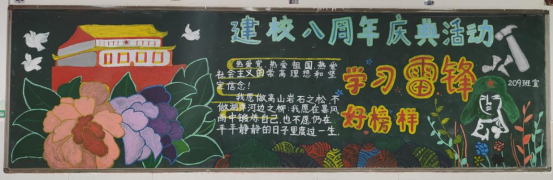 建校八周年庆典活动
热爱党,热爱祖国,热爱
社会主义的崇高理想和坚
定信念!
我愿做高山岩石之松,不
做湖岸河边之柳。我愿在暴风
雨中锻炼自己,也不愿仍在
平平静静的日子里度过一生。
学习雷锋
好榜样
209班宣